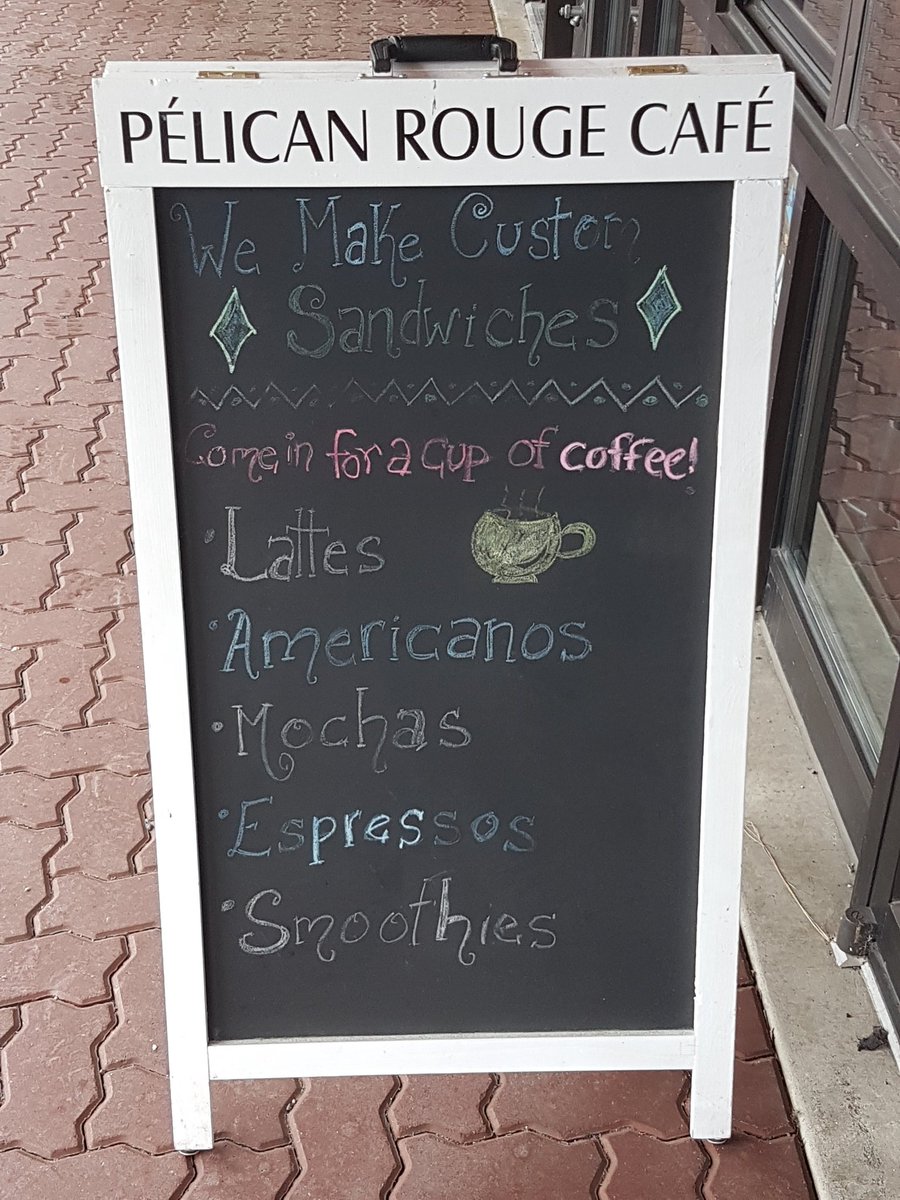 PÉLICAN ROUGE CAFÉ
We Make Custom
Sandwiches
Come in for a cup of coffee!
• Lattes
• Americanos
• Mochas
• Espressos
• Smoothies